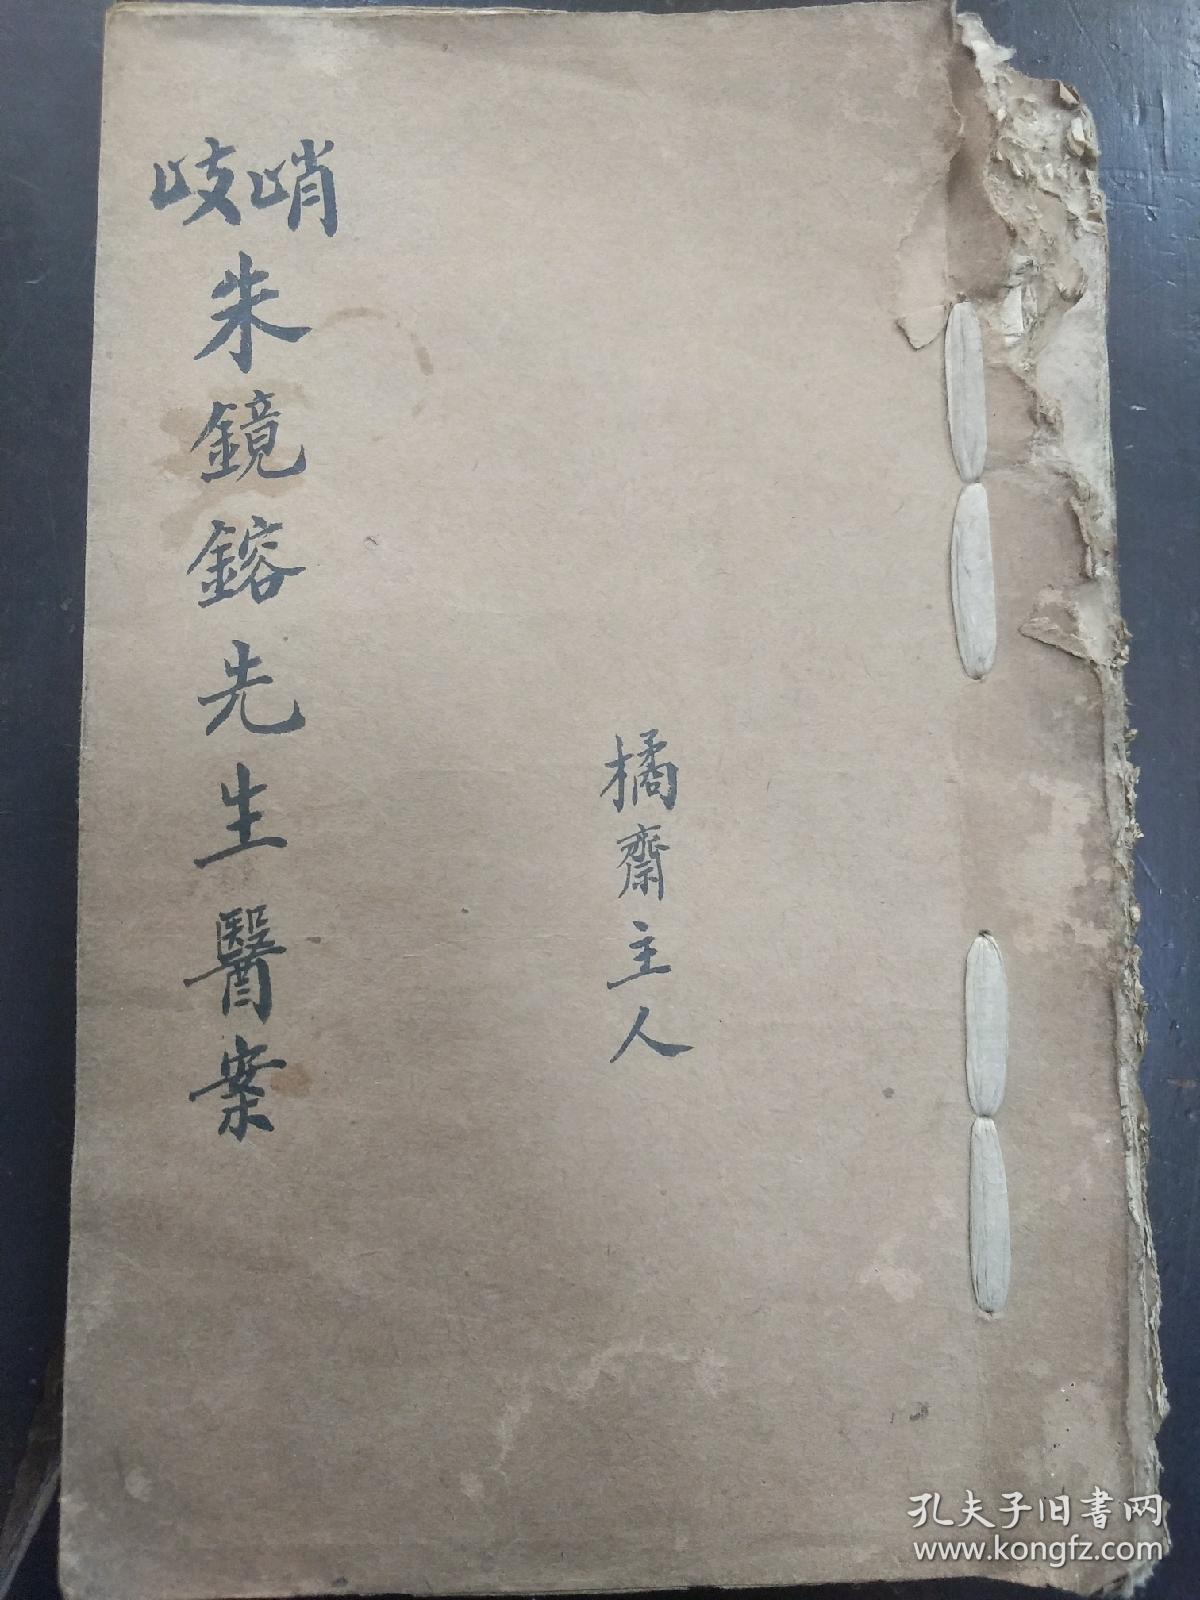 峭岐朱鏡鎔先生醫案
橘齋主人
孔夫子旧书网
www.kongfz.com